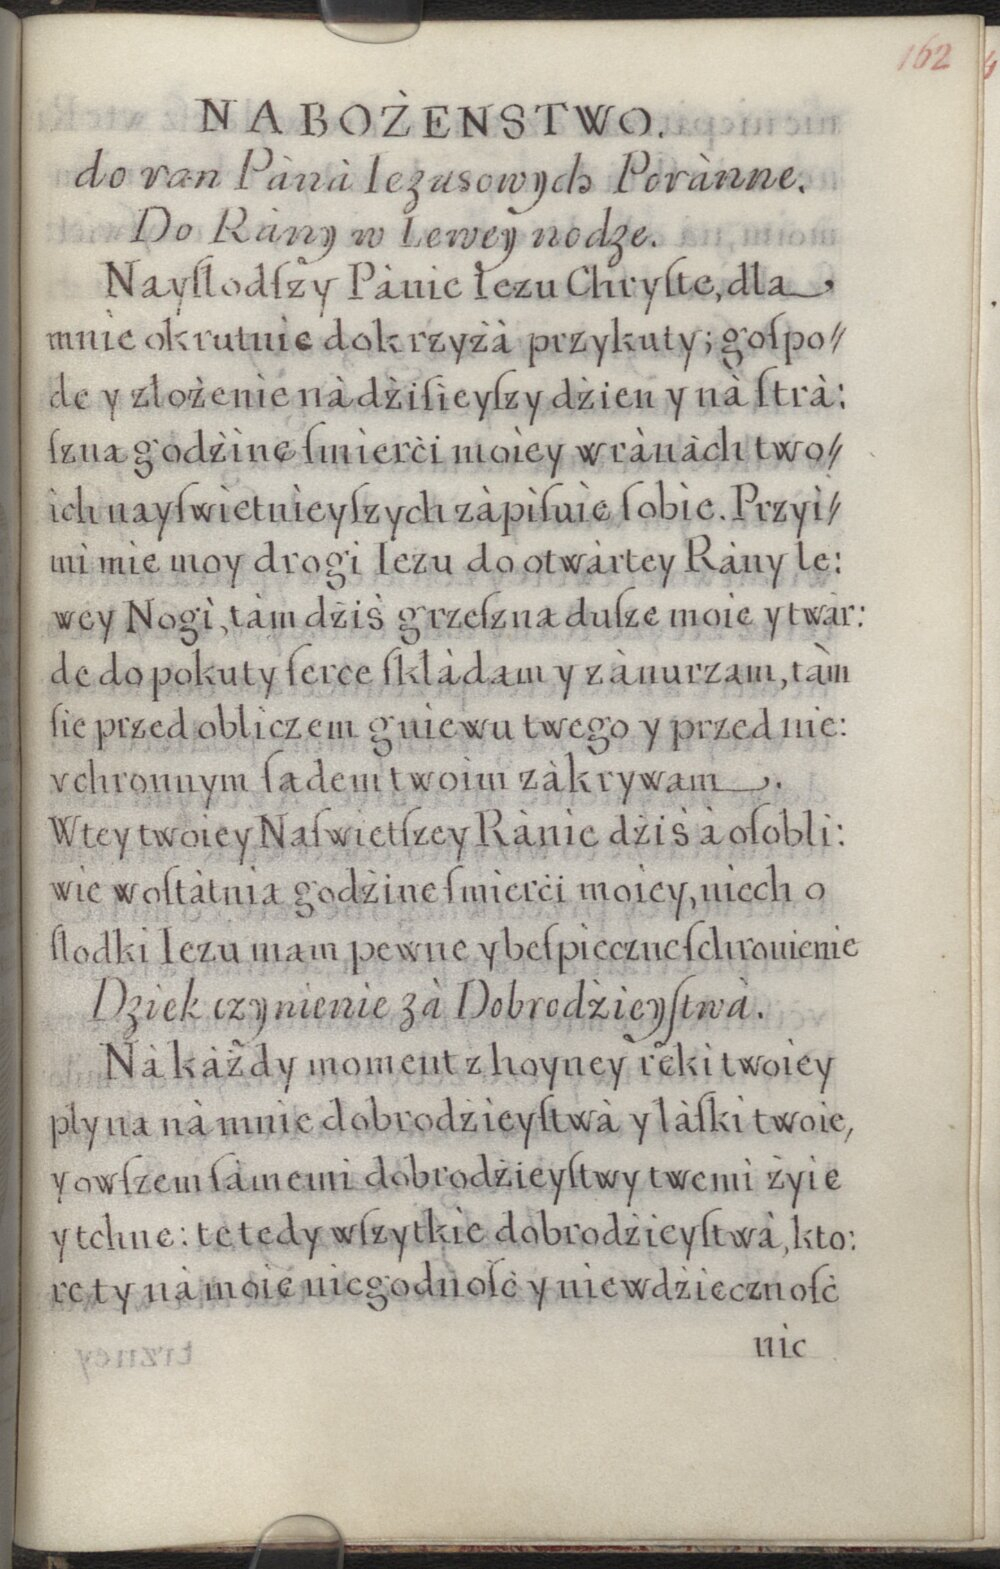 162
NABOŻENSTWO.
do ran Pànà Iezusowych Porànne.
Do Rány w Lewey nodze.
Nayſlodſzy Pànie Iezu Chryſte, dla
mnie okrutnie do krzyżà przykuty; goſpo//
de y złożenie nà dżiſieyſzy dżien y nà ſtrà:
szna godżine ſmierći moiey w rànàch two//
ich nayſwietnieyſzych zàpiſuie ſobie. Przyi//
mi mie moy drogi Iezu do otwàrtey Ràny le:
wey Nogi, tàm dżiś grzeſzna duſze moie y twàr:
de do pokuty ſerce ſkłàdam y zànurzam, tàm
ſie przed obliczem gniewu twego y przed nie:
vchronnym ſadem twoim zàkrywam.
W tey twoiey Naſwietſzey Rànie dżiś à oſobli:
wie w oſtàtnia godżine ſmierći moiey, niech o
ſlodki Iezu mam pewne y beſpieczne ſchronienie
Dziek czynienie zà Dobrodżieyſtwà.
Nà kàżdy moment z hoyney reki twoiey
płyna nà mnie dobrodżieyſtwà y làſki twoie,
y owſzem ſàmemi dobrodżieyſtwy twemi żyie
y tchne: te tedy wſzytkie dobrodżieyſtwà, kto:
re ty nà moie niegodnoſć y niewdżiecznoſć
nic